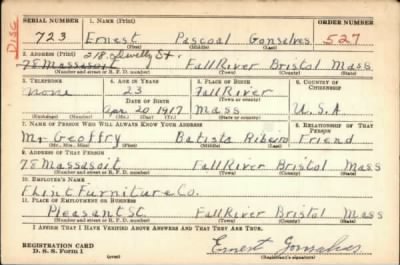 SERIAL NUMBER 1. NAME (Print) ORDER NUMBER
Disc.
723 Ernest Pascoal Gonsalves 527
(First) (Middle) (Last)
2. ADDRESS (Print) 218 St.
78 Massasoit Fall River Bristol Mass
(Number and street or R. F. D. number) (Town) (County) (State)
3. TELEPHONE 4. AGE IN YEARS 5. PLACE OF BIRTH 6. COUNTRY OF CITIZENSHIP
none 23 Fall River
DATE OF BIRTH (Town or county)
Apr 20 1917 Mass U.S.A
(Exchange) (No.) (Mo.) (Day) (Yr.) (State or country)
7. NAME OF PERSON WHO WILL ALWAYS KNOW YOUR ADDRESS 8. RELATIONSHIP OF THAT PERSON
Mr Geoffry Batista Ribeiro Friend
(Mr., Mrs., Miss) (First) (Middle) (Last)
9. ADDRESS OF THAT PERSON
78 Massasoit Fall River Bristol Mass
(Number and street or R. F. D. number) (Town) (County) (State)
10. EMPLOYER'S NAME
Flint Furniture Co.
11. PLACE OF EMPLOYMENT OR BUSINESS
Pleasant St. Fall River Bristol Mass
(Number and street or R. F. D. number) (Town) (County) (State)
I AFFIRM THAT I HAVE VERIFIED ABOVE ANSWERS AND THAT THEY ARE TRUE.
REGISTRATION CARD
D. S. S. Form 1 (over) Ernest Gonsalves
(Registrant's signature)